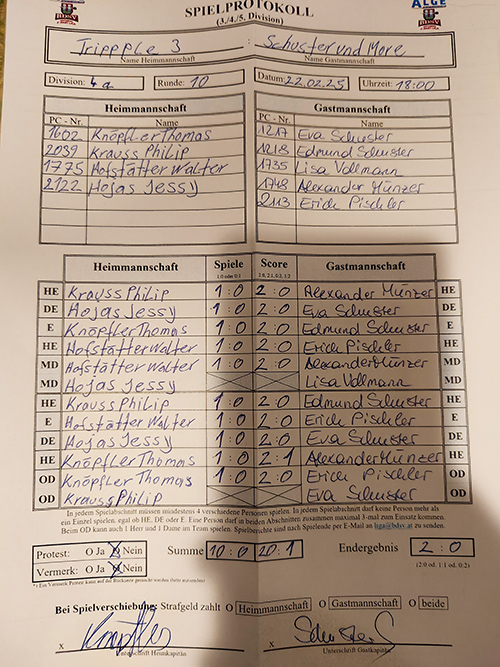 BDSV
SPIELPROTOKOLL
(3./4./5. Division)
Trippple 3 : Schuster und More
Name Heimmannschaft Name Gastmannschaft
Division: 4a Runde: 10 Datum: 22.02.25 Uhrzeit: 18:00
Heimmannschaft Gastmannschaft
PC - Nr. Name PC - Nr. Name
1602 Knöpfler Thomas 1217 Eva Schuster
2039 Krauss Philip 1218 Edmund Schuster
1775 Hofstätter Walter 1735 Lisa Vollmann
2122 Hojas Jessy 1748 Alexander Münzer
2113 Erich Pischler
Heimmannschaft Spiele Score Gastmannschaft
1:0 oder 0:1 2:0, 2:1, 0:2, 1:2
HE Krauss Philip 1:0 2:0 Alexander Münzer HE
DE Hojas Jessy 1:0 2:0 Eva Schuster DE
E Knöpfler Thomas 1:0 2:0 Edmund Schuster E
HE Hofstätter Walter 1:0 2:0 Erich Pischler HE
MD Hofstätter Walter 1:0 2:0 Alexander Münzer MD
MD Hojas Jessy Lisa Vollmann MD
HE Krauss Philip 1:0 2:0 Edmund Schuster HE
E Hofstätter Walter 1:0 2:0 Erich Pischler E
DE Hojas Jessy 1:0 2:0 Eva Schuster DE
HE Knöpfler Thomas 1:0 2:1 Alexander Münzer HE
OD Knöpfler Thomas 1:0 2:0 Erich Pischler OD
OD Krauss Philip Eva Schuster OD
In jedem Spielabschnitt müssen mindestens 4 verschiedene Personen spielen. In jedem Spielabschnitt darf keine Person mehr als
ein Einzel spielen, egal ob HE, DE oder E. Eine Person darf in beiden Abschnitten zusammen maximal 3-mal zum Einsatz kommen.
Beim OD kann auch 1 Herr und 1 Dame im Team spielen. Spielberichte sind nach Spielende per E-Mail an liga@bdsv.at zu senden.
Protest: O Ja O Nein Summe 10:0 20:1 Endergebnis 2:0
Vermerk: O Ja O Nein (2:0 od. 1:1 od. 0:2)
Bei Spielverschiebung: Strafgeld zahlt O Heimmannschaft O Gastmannschaft O beide
x x
Unterschrift Heimkapitän Unterschrift Gastkapitän